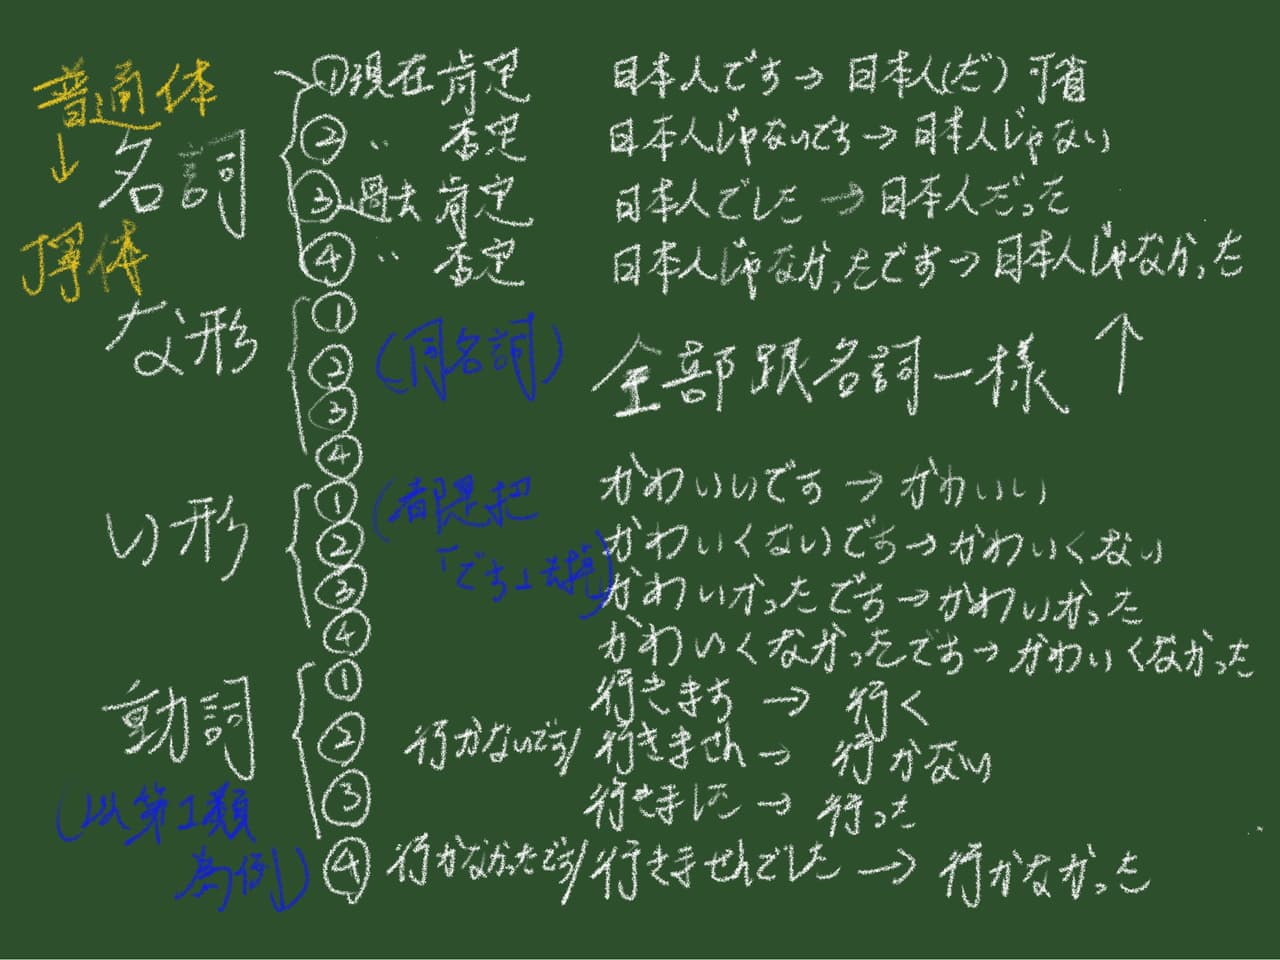 普通体
↓
常体
名詞
①現在肯定 日本人です→日本人(だ)可省
② 〃 否定 日本人じゃないです→日本人じゃない
③過去肯定 日本人でした→日本人だった
④ 〃 否定 日本人じゃなかったです→日本人じゃなかった
な形
①
② (同名詞) 全部跟名詞一樣 ↑
③
④
い形
① (都是把 かわいいです→かわいい
② 「です」去掉) かわいくないです→かわいくない
③ かわいかったです→かわいかった
④ かわいくなかったです→かわいくなかった
動詞
(以第1類
為例)
① 行きます→行く
② 行かないです/行きません→行かない
③ 行きました→行った
④ 行かなかったです/行きませんでした→行かなかった